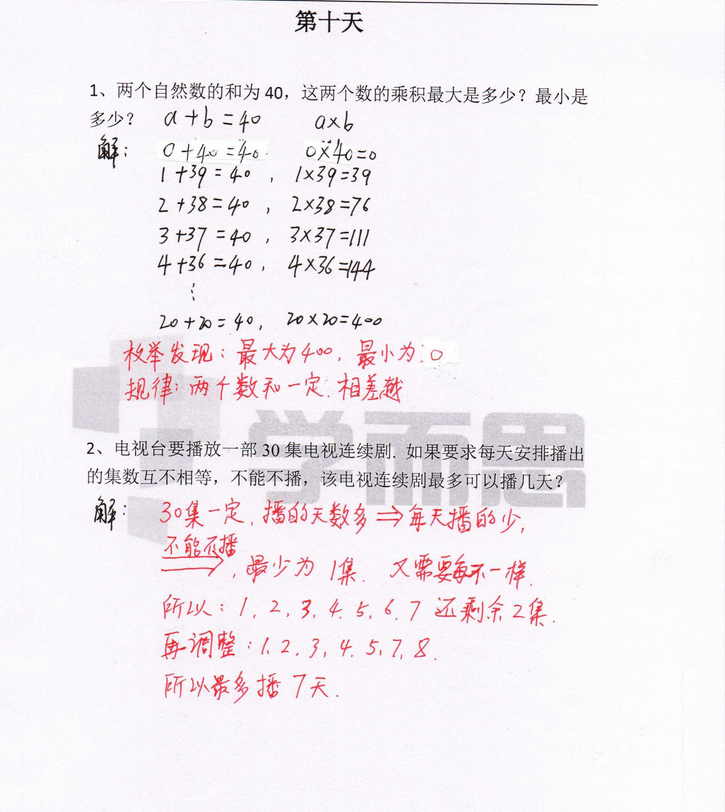 第十天
1、两个自然数的和为 40，这两个数的乘积最大是多少？最小是
多少？ a+b=40 a×b
解： 0+40=40 0×40=0
1+39=40，1×39=39
2+38=40，2×38=76
3+37=40，3×37=111
4+36=40，4×36=144
⋮
20+20=40，20×20=400
枚举发现：最大为400，最小为：0
规律：两个数和一定.相差越
学而思
2、电视台要播放一部 30 集电视连续剧. 如果要求每天安排播出
的集数互不相等，不能不播，该电视连续剧最多可以播几天？
解： 30集一定，播的天数多⇒每天播的少，
不能不播
，最少为1集. 又需要每不一样.
所以：1，2，3，4，5，6，7 还剩余2集.
再调整：1，2，3，4，5，7，8.
所以最多播7天.